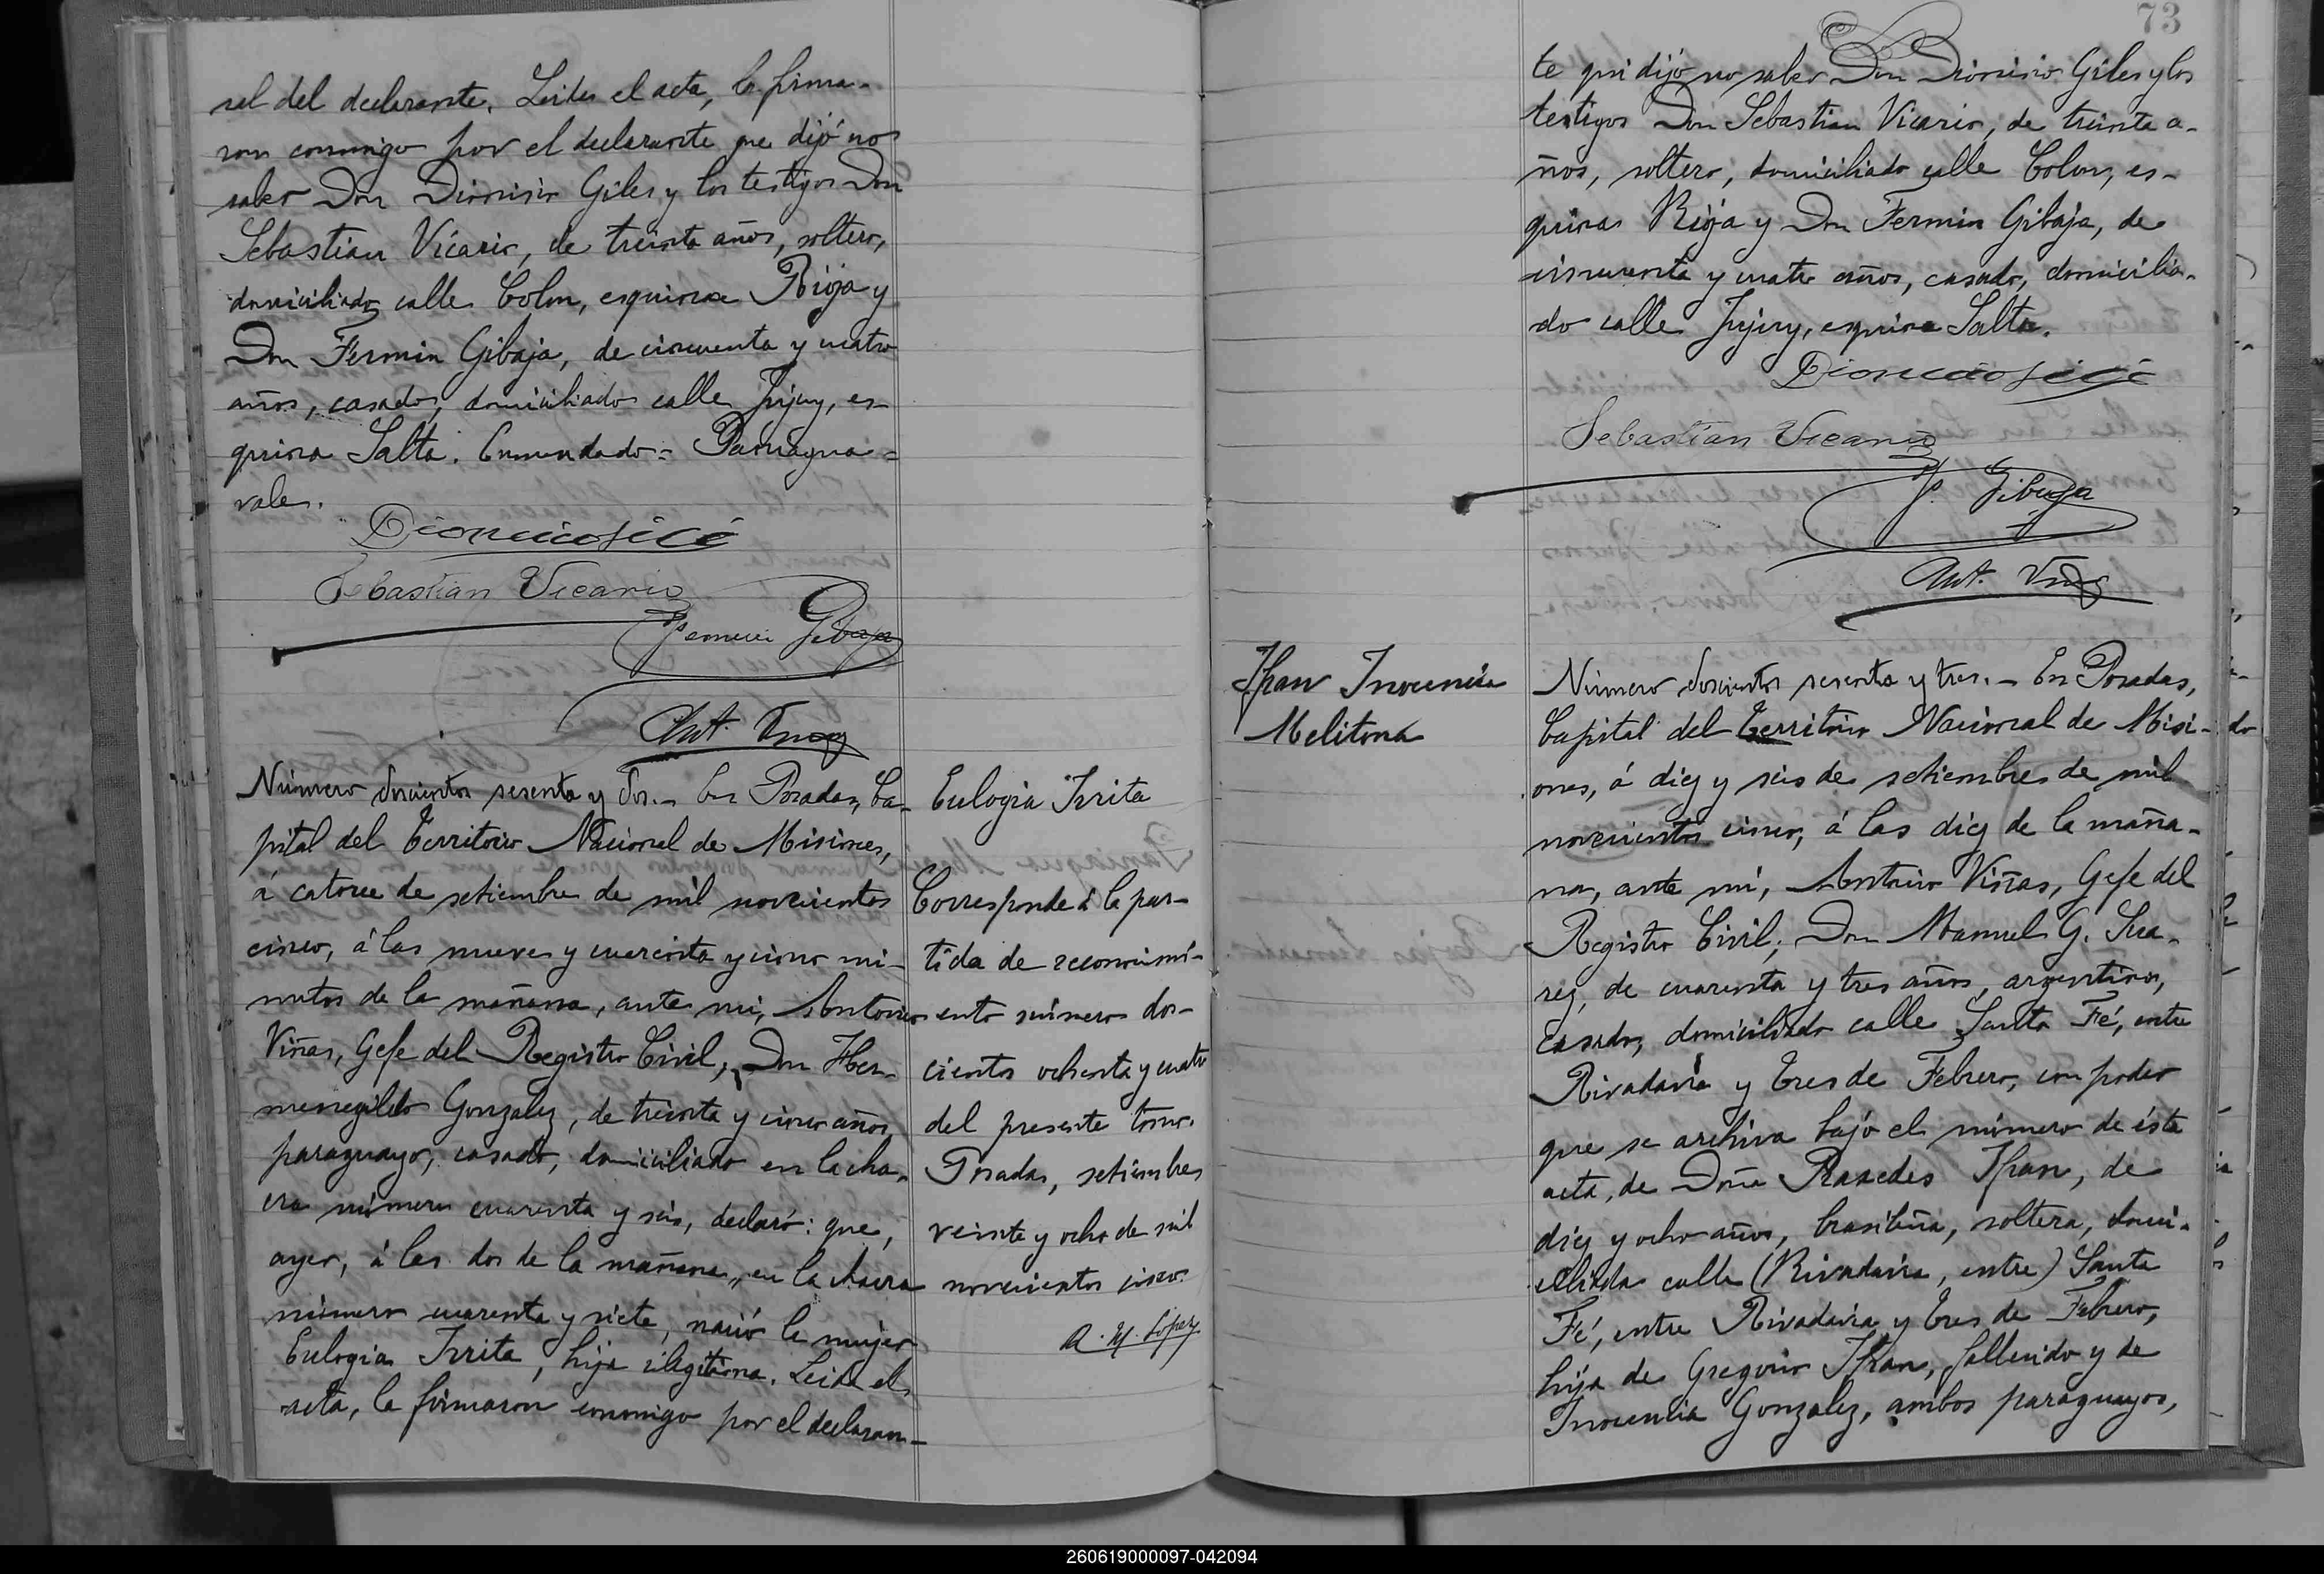 sel del declarante. Leida el acta, la firma-
ron conmigo por el declarante que dijó no
saber Don Dionisio Giles y los testigos Don
Sebastian Vicario, de treinta años, soltero,
domiciliado calle Colon, esquina Rioja y
Don Fermin Gibaja, de cincuenta y cuatro
años, casado, domiciliado calle Jujuy, es-
quina Salta. Enmendado= Paniagua=
vale.
Sebastian Vicario
Fermin Gibaja
Ant. Vinas
Número doscientos sesenta y dos.- En Posadas, Ca-
pital del Territorio Nacional de Misiones,
á catorce de setiembre de mil novecientos
cinco, á las nueve y cuarenta y cinco mi-
nutos de la mañana, ante mi, Antonio
Viñas, Gefe del Registro Civil, Don Her-
menegildo Gonzalez, de treinta y cinco años
paraguayo, casado, domiciliado en la cha-
cra número cuarenta y seis, declaró: que,
ayer, á las dos de la mañana, en la chacra
número cuarenta y siete, nació la mujer
Eulogia Irrita, hija ilegitima. Leida el
acta, la firmaron conmigo por el declaran-
Eulogia Irrita
Corresponde á la par-
tida de reconocimi-
ento número dos-
cientos ochenta y cuatro
del presente tomo.
Posadas, setiembre
veinte y ocho de mil
novecientos cinco.
A. M. Lopez
73
te que dijo no saber Don Dionisio Giles y los
testigos Don Sebastian Vicario, de treinta a-
ños, soltero, domiciliado calle Colon, es-
quina Rioja y Don Fermin Gibaja, de
cincuenta y cuatro años, casado, domicilia-
do calle Jujuy, esquina Salta.
Sebastian Vicario
F. Gibaja
Ant. Vinas
Ifran Inocencia
Melitona
Número doscientos sesenta y tres.- En Posadas,
Capital del Territorio Nacional de Misi-
ones, á diez y seis de setiembre de mil
novecientos cinco, á las diez de la maña-
na, ante mi, Antonio Viñas, Gefe del
Registro Civil; Don Manuel G. Sua-
rez, de cuarenta y tres años, argentino,
casado, domiciliado calle Santa Fé, entre
Rivadavia y Tres de Febrero, con poder
que se archiva bajó el número de ésta
acta, de Doña Ifran, de
diez y ocho años, brasileña, soltera, domi-
ciliada calle (Rivadavia, entre) Santa
Fé, entre Rivadavia y Tres de Febrero,
hija de Gregorio Ifran, fallecido y de
Inocencia Gonzalez, ambos paraguayos,
260619000097-042094